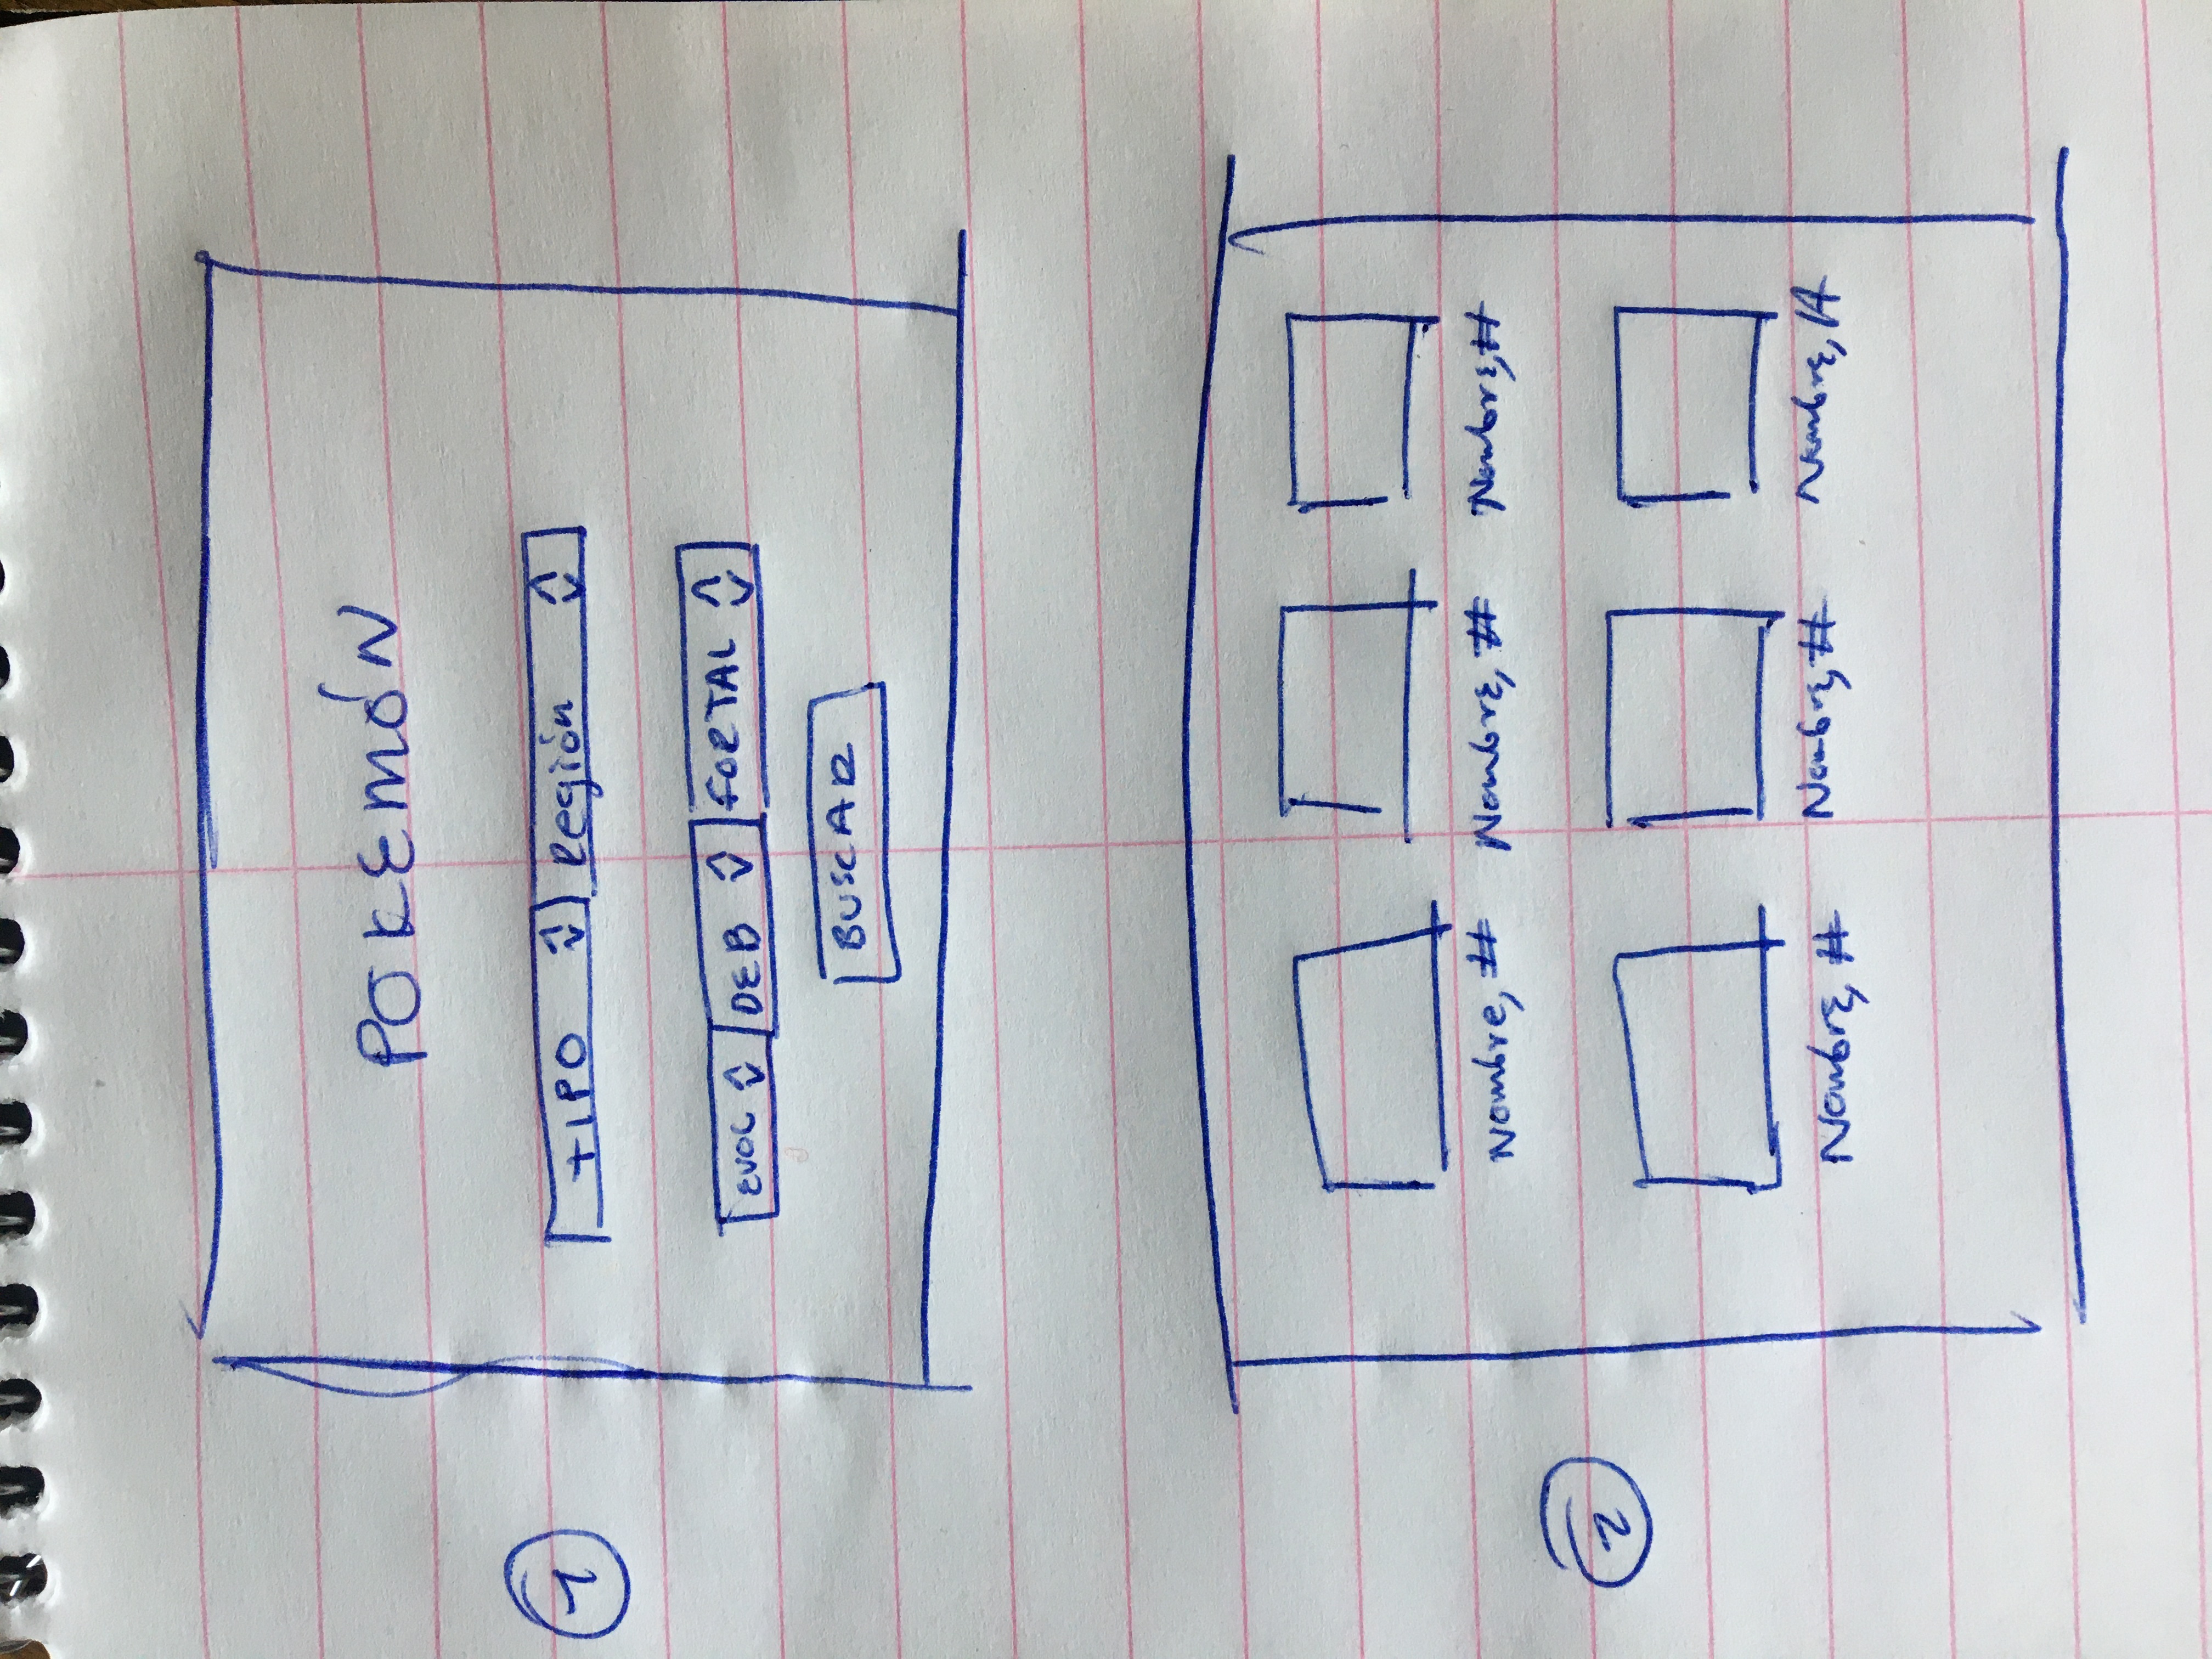 POKEMÓN
1
TIPO Región
EVOL DEB FORTAL
BUSCAR
Nombre, # Nombre, # Nombre, #
2
Nombre, # Nombre, # Nombre, #